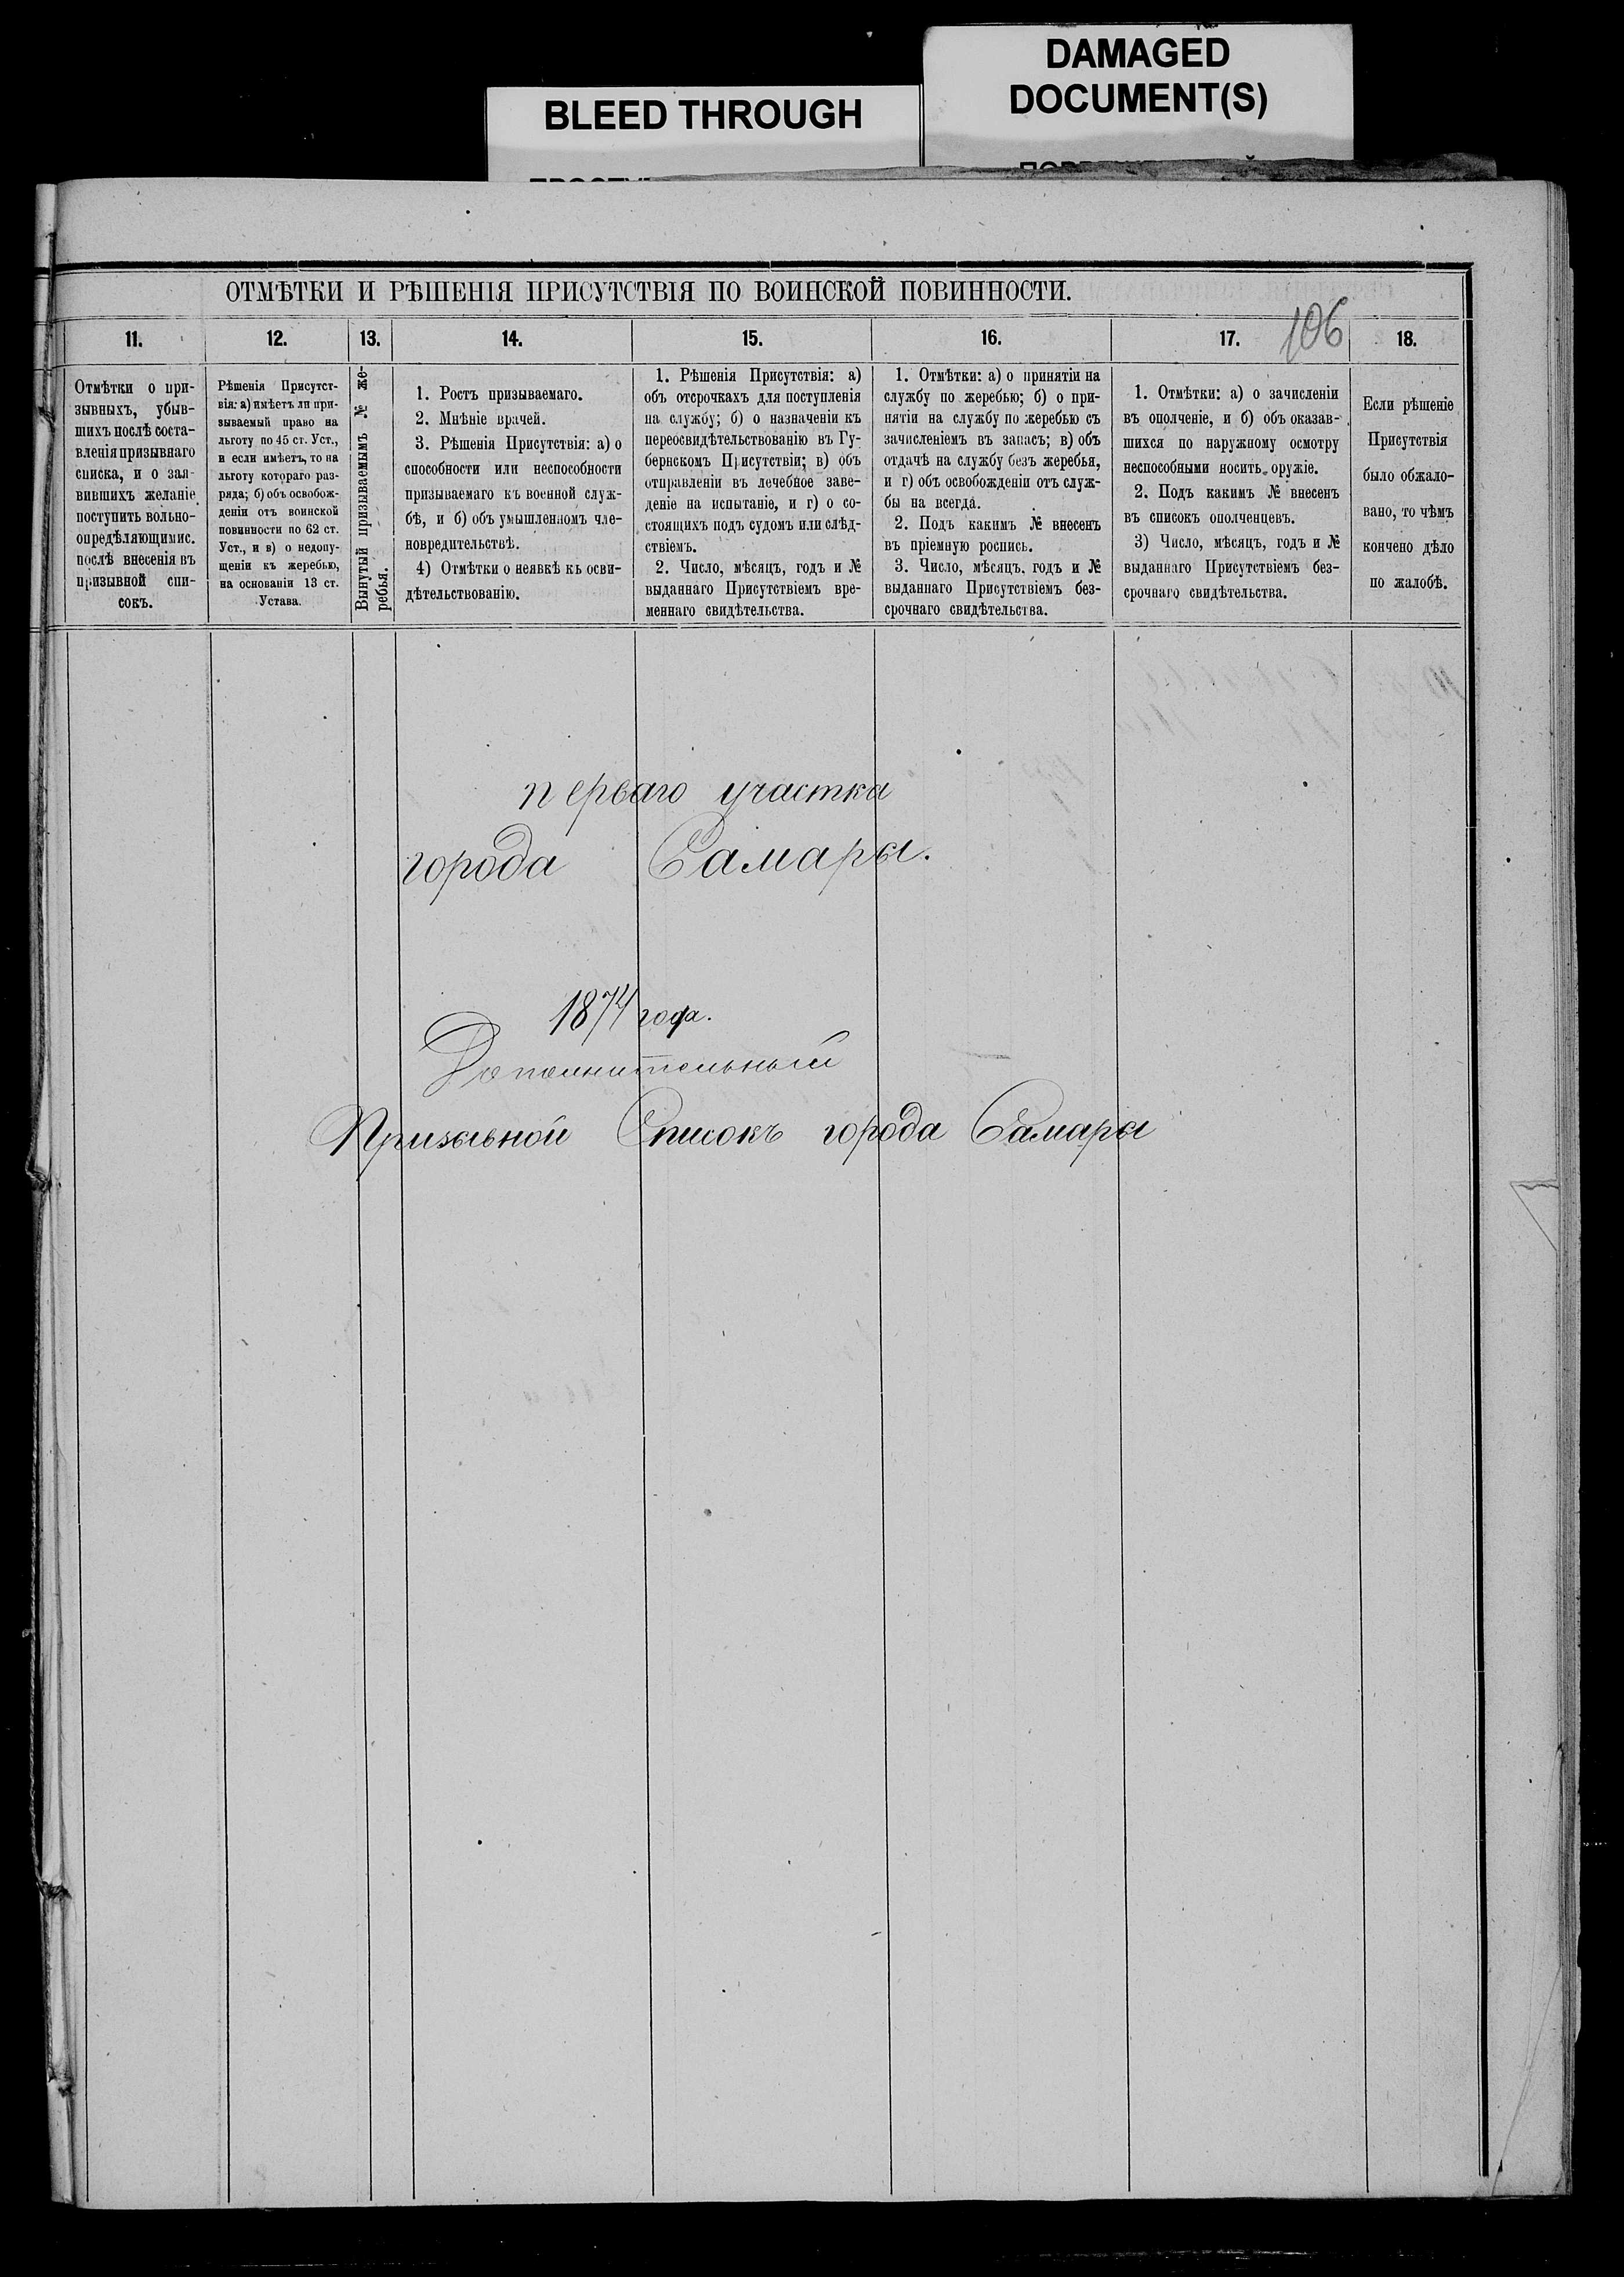 DAMAGED
DOCUMENT(S)
BLEED THROUGH
ОТМѢТКИ И РѢШЕНІЯ ПРИСУТСТВІЯ ПО ВОИНСКОЙ ПОВИННОСТИ.
106
11.
12.
13.
14.
15.
16.
17.
18.
Отмѣтки о при-
зывныхъ, убыв-
шихъ послѣ соста-
вленія призывнаго
списка, и о зая-
вившихъ желаніе
поступить вольно-
опредѣляющимис.
послѣ внесенія въ
призывной спи-
сокъ.
Рѣшенія Присутст-
вія: а) имѣетъ ли при-
зываемый право на
льготу по 45 ст. Уст.,
и если имѣетъ, то на
льготу котораго раз-
ряда; б) объ освобож-
деніи отъ воинской
повинности по 62 ст.
Уст., и в) о недопу-
щеніи къ жеребью,
на основаніи 13 ст.
Устава.
Вынутый призываемымъ № же-
ребья.
1. Ростъ призываемаго.
2. Мнѣніе врачей.
3. Рѣшенія Присутствія: а) о
способности или неспособности
призываемаго къ военной служ-
бѣ, и б) объ умышленномъ чле-
новредительствѣ.
4) Отмѣтки о неявкѣ къ осви-
дѣтельствованію.
1. Рѣшенія Присутствія: а)
объ отсрочкахъ для поступленія
на службу; б) о назначеніи къ
переосвидѣтельствованію въ Гу-
бернскомъ Присутствіи; в) объ
отправленіи въ лечебное заве-
деніе на испытаніе, и г) о со-
стоящихъ подъ судомъ или слѣд-
ствіемъ.
2. Число, мѣсяцъ, годъ и №
выданнаго Присутствіемъ вре-
меннаго свидѣтельства.
1. Отмѣтки: а) о принятіи на
службу по жеребью; б) о при-
нятіи на службу по жеребью съ
зачисленіемъ въ запасъ; в) объ
отдачѣ на службу безъ жеребья,
и г) объ освобожденіи отъ служ-
бы на всегда.
2. Подъ какимъ № внесенъ
въ пріемную роспись.
3. Число, мѣсяцъ, годъ и №
выданнаго Присутствіемъ без-
срочнаго свидѣтельства.
1. Отмѣтки: а) о зачисленіи
въ ополченіе, и б) объ оказав-
шихся по наружному осмотру
неспособными носить оружіе.
2. Подъ какимъ № внесенъ
въ список ополченцевъ.
3) Число, мѣсяцъ, годъ и №
выданнаго Присутствіемъ без-
срочнаго свидѣтельства.
Если рѣшеніе
Присутствія
было обжало-
вано, то чѣмъ
кончено дѣло
по жалобѣ.
перваго участка
города Самары.
1874 года.
Дополнительный
Призывной Списокъ города Самары